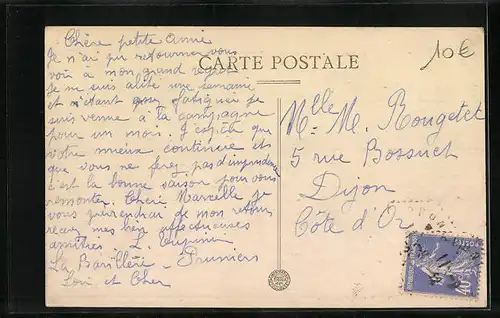 CARTE POSTALE
10€
Chère petite amie
Je n'ai pu retourner vous
voir à mon grand regret
Je me suis alitée une semaine
et m'étant fatiguée je
suis venue à la campagne
pour un mois. J'espère que
votre mieux continue et
que vous ne ferez pas d'imprudence
c'est la bonne saison pour vous
remonter. Chère Marcelle je
vous préviendrai de mon retour
recevez mes bien affectueuses
amitiés. L.
La Barillère - Pruniers
Loir et Cher
Melle M. Rougetet
5 rue Bossuet
Dijon
Côte d'Or
40